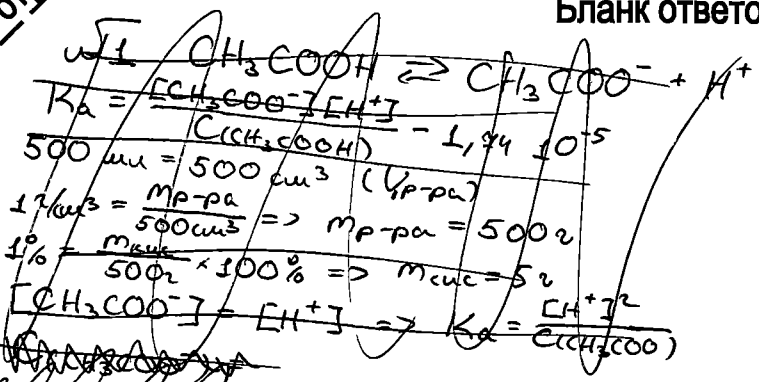 Бланк ответо
√1 CH₃COOH ⇄ CH₃COO⁻ + H⁺
Kₐ = [CH₃COO⁻][H⁺] / C(CH₃COOH) - 1,74 10⁻⁵
500 мл = 500 см³ (Vр-ра)
1 г/см³ = mр-ра / 500см³ => mр-ра = 500г
1% = mкис / 500г × 100% => mкис = 5г
[CH₃COO⁻] = [H⁺] => Kₐ = [H⁺]² / C(CH₃COO)